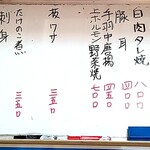 白肉タレ焼 八〇〇
豚耳 四〇〇
手羽中唐揚 四五〇
ホルモン野菜焼 七〇〇
板ワサ 三五〇
たけのこ煮 三五〇
刺身